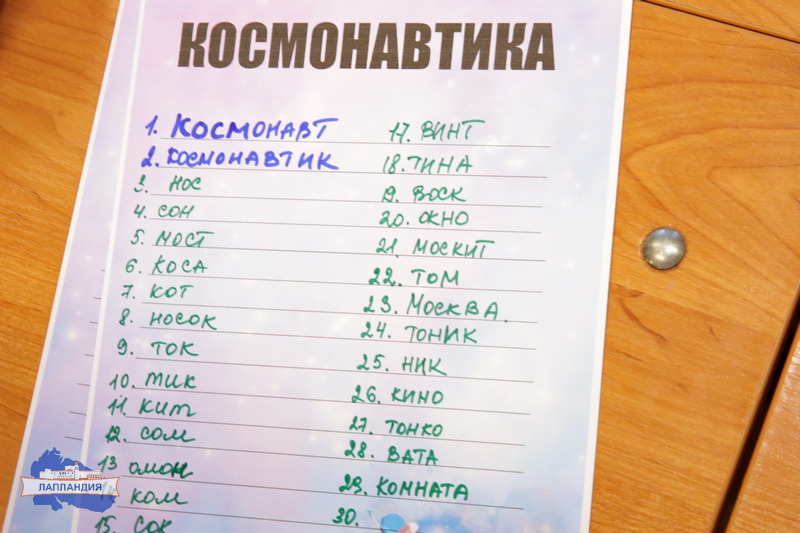 КОСМОНАВТИКА
1. КОСМОНАВТ
2. КОСМОНАВТИК
3. НОС
4. СОН
5. МОСТ
6. КОСА
7. КОТ
8. НОСОК
9. ТОК
10. ТИК
11. КИТ
12. СОМ
13 ОМОН
КОМ
15. СОК
17. ВИНТ
18. ТИНА
19. ВОСК
20. ОКНО
21. МОСКИТ
22. ТОМ
23. МОСКВА.
24. ТОНИК
25. НИК
26. КИНО
27. ТОНКО
28. ВАТА
29. КОМНАТА
30.
ЛАПЛАНДИЯ